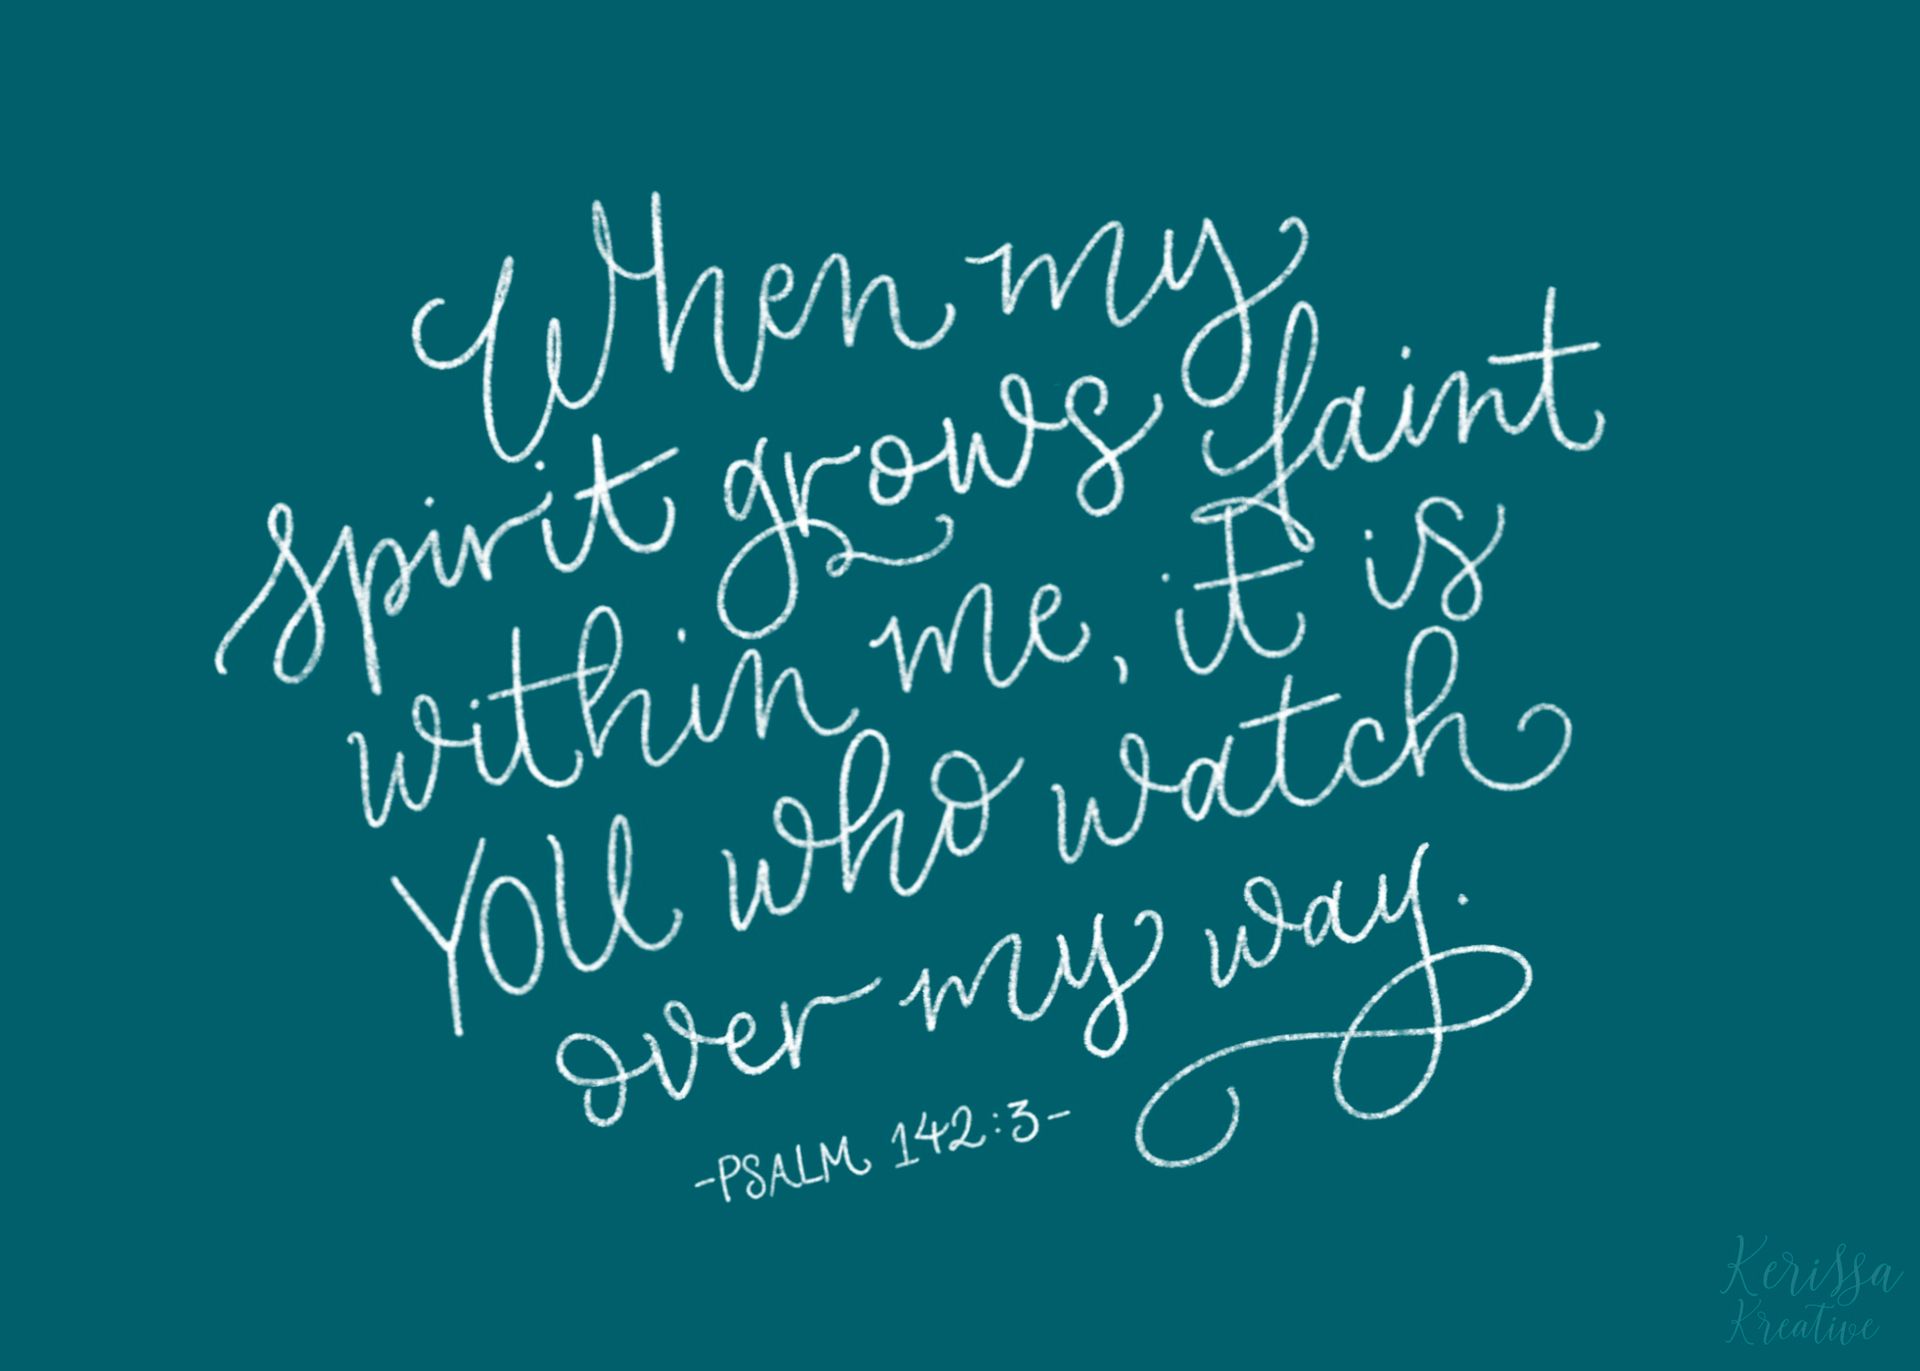 When my
spirit grows faint
within me, it is
YOU who watch
over my way.
-PSALM 142:3-
Kerissa
Kreative